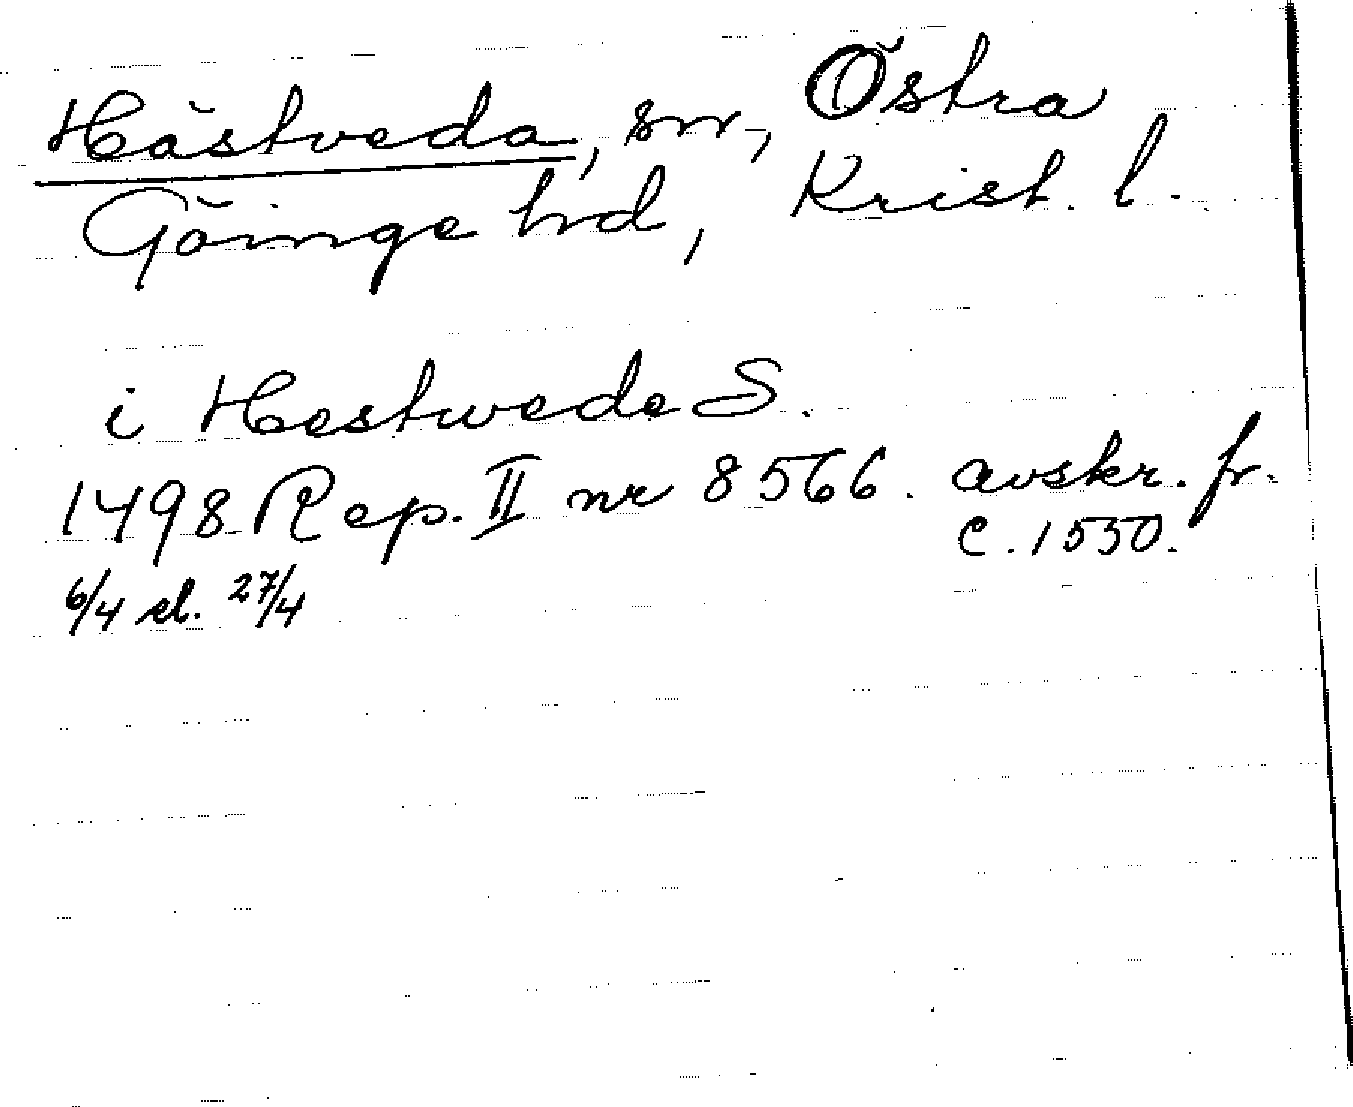 Hästveda, sn, Östra
Göinge hd, Krist. l.
i Hestwede S.
1498 Rep. II nr 8566. avskr. fr.
c. 1550.
6/4 el. 27/4